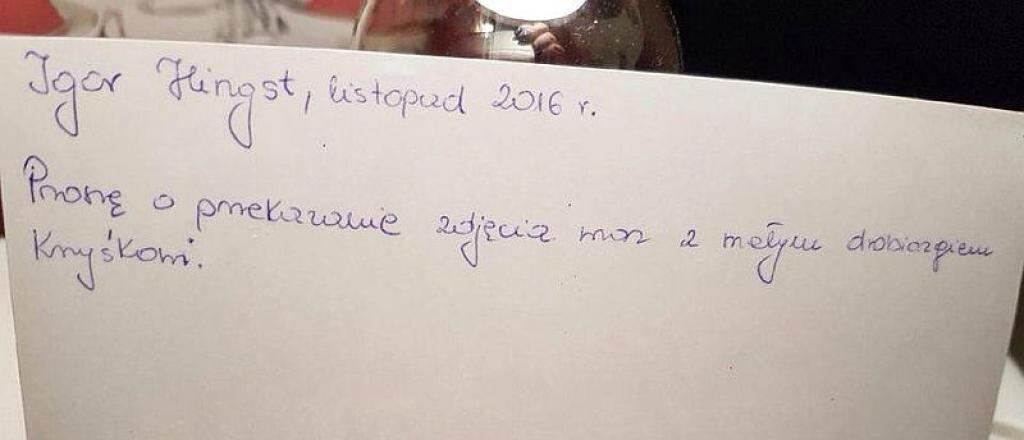 Igor Hingst, listopad 2016 r.
Proszę o przekazanie zdjęcia wraz z małym drobiazgiem
Krzyśkowi.